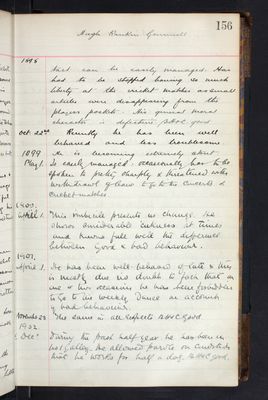 156
Hugh Rankin Gemmell
1898
that can be easily managed. Has
had to be stopped having so much
liberty at the cricket matches as small
articles were disappearing from the
players pockets. His general moral
character is defective. B.H.C. good
Oct 22nd Recently he has been well
behaved and less troublesome
1899 He is becoming extremely
May 1. so easily managed. occasionally has to be
spoken to pretty sharply & threatened with
withdrawal of leave to go to the Concerts &
Cricket matches
1900.
April 6. This imbecile presents no change. He
shows considerable cuteness at times
and knows full well the difference
between Good & bad behaviour.
1901.
April 1. He has been well behaved of late & this
is mostly due no doubt to fact that on
one or two occasions he has been forbidden
to go to his weekly Dance on account
of bad behaviour.
November 23 The same in all respects B.H.C. good.
1902
Dec During the past half year he has been in
He works for half a day. B.H.C. good.